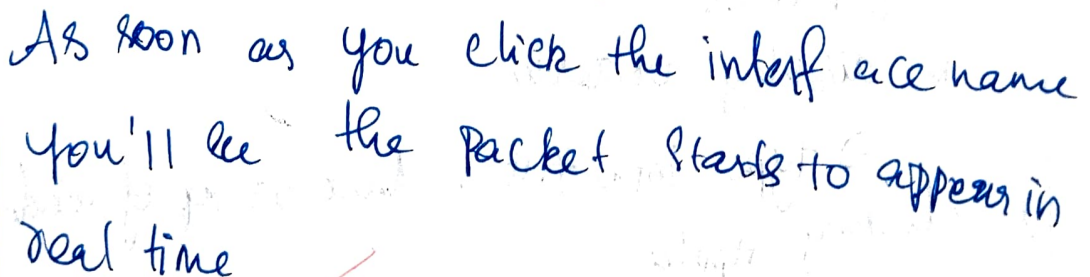 As soon as you click the interface name
you'll see the Packet starts to appear in
real time